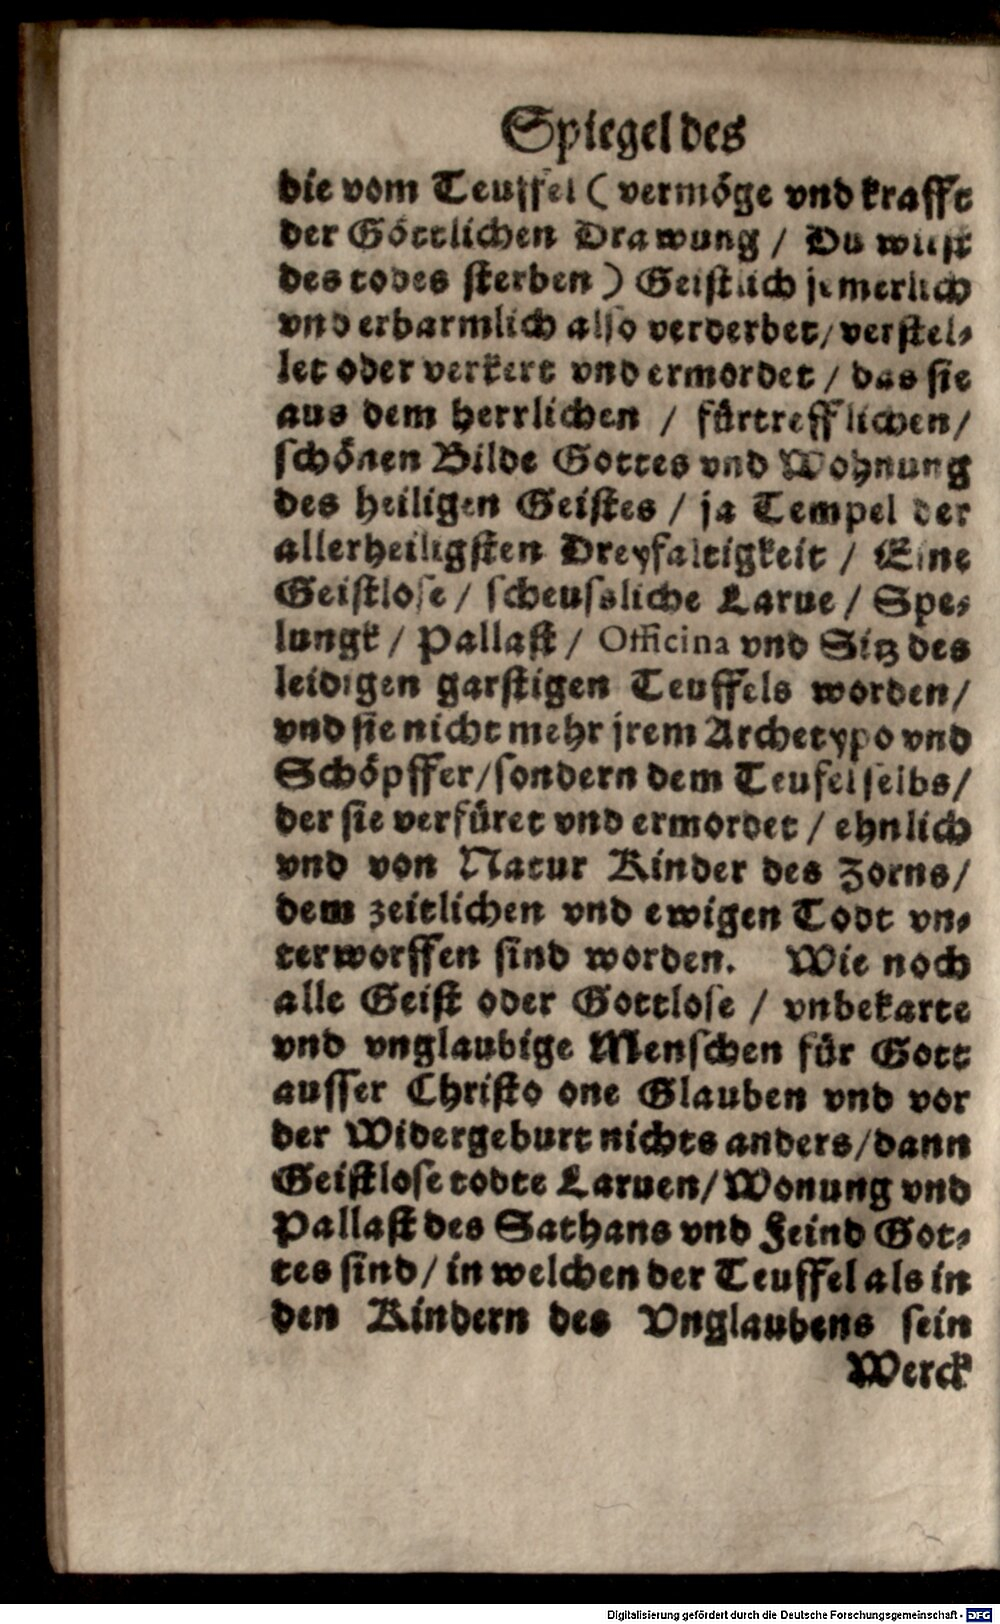 Spiegel des
die vom Teuffel ( vermöge vnd krafft
der Göttlichen Drawung / Du wirst
des todes sterben ) Geistlich jemerlich
vnd erbarmlich also verderbet / verstel-
let oder verkert vnd ermordet / das sie
aus dem herrlichen / fürtrefflichen /
schönen Bilde Gottes vnd Wohnung
des heiligen Geistes / ja Tempel der
allerheiligsten Dreyfaltigkeit / Eine
Geistlose / scheusliche Larue / Spe-
lungk / Pallast / Officina vnd Sitz des
leidigen garstigen Teuffels worden /
vnd sie nicht mehr jrem Archetypo vnd
Schöpffer / sondern dem Teufel selbs /
der sie verfüret vnd ermordet / ehnlich
vnd von Natur Kinder des Zorns /
dem zeitlichen vnd ewigen Todt vn-
terworffen sind worden. Wie noch
alle Geist oder Gottlose / vnbekarte
vnd vnglaubige Menschen für Gott
ausser Christo one Glauben vnd vor
der Widergeburt nichts anders / dann
Geistlose todte Laruen / Wonung vnd
Pallast des Sathans vnd Feind Got-
tes sind / in welchen der Teuffel als in
den Kindern des Vnglaubens sein
Werck
Digitalisierung gefördert durch die Deutsche Forschungsgemeinschaft - DFG